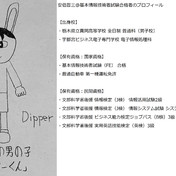 安佐四三＠基本情報技術者試験合格者のプロフィール
【出身校】
・栃木県立真岡高等学校 全日制 普通科（男子校）
・宇都宮ビジネス電子専門学校 電子情報処理科
【保有資格：国家資格】
・基本情報技術者試験（FE） 合格
・普通自動車 第一種運転免許
【保有資格：民間資格】
・文部科学省後援 情報検定（J検） 情報活用試験2級
・文部科学省後援 情報検定（J検） 情報システム試験
・文部科学省後援 ビジネス能力検定ジョブパス（B検） 3級
・文部科学省後援 実用英語技能検定（英検） 3級
Dipper
の男の子
くん』